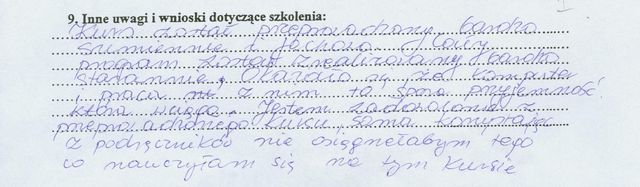 9. Inne uwagi i wnioski dotyczące szkolenia:
Kurs został przeprowadzony bardzo
sumiennie i fachowo. Cały
program został zrealizowany bardzo
starannie. Okazało się, że komputer
i praca z nim to sama przyjemność
która wciąga. Jestem zadowolona z
przeprowadzonego kursu, sama korzystając
z podręczników nie osiągnęłabym tego
co nauczyłam się na tym kursie